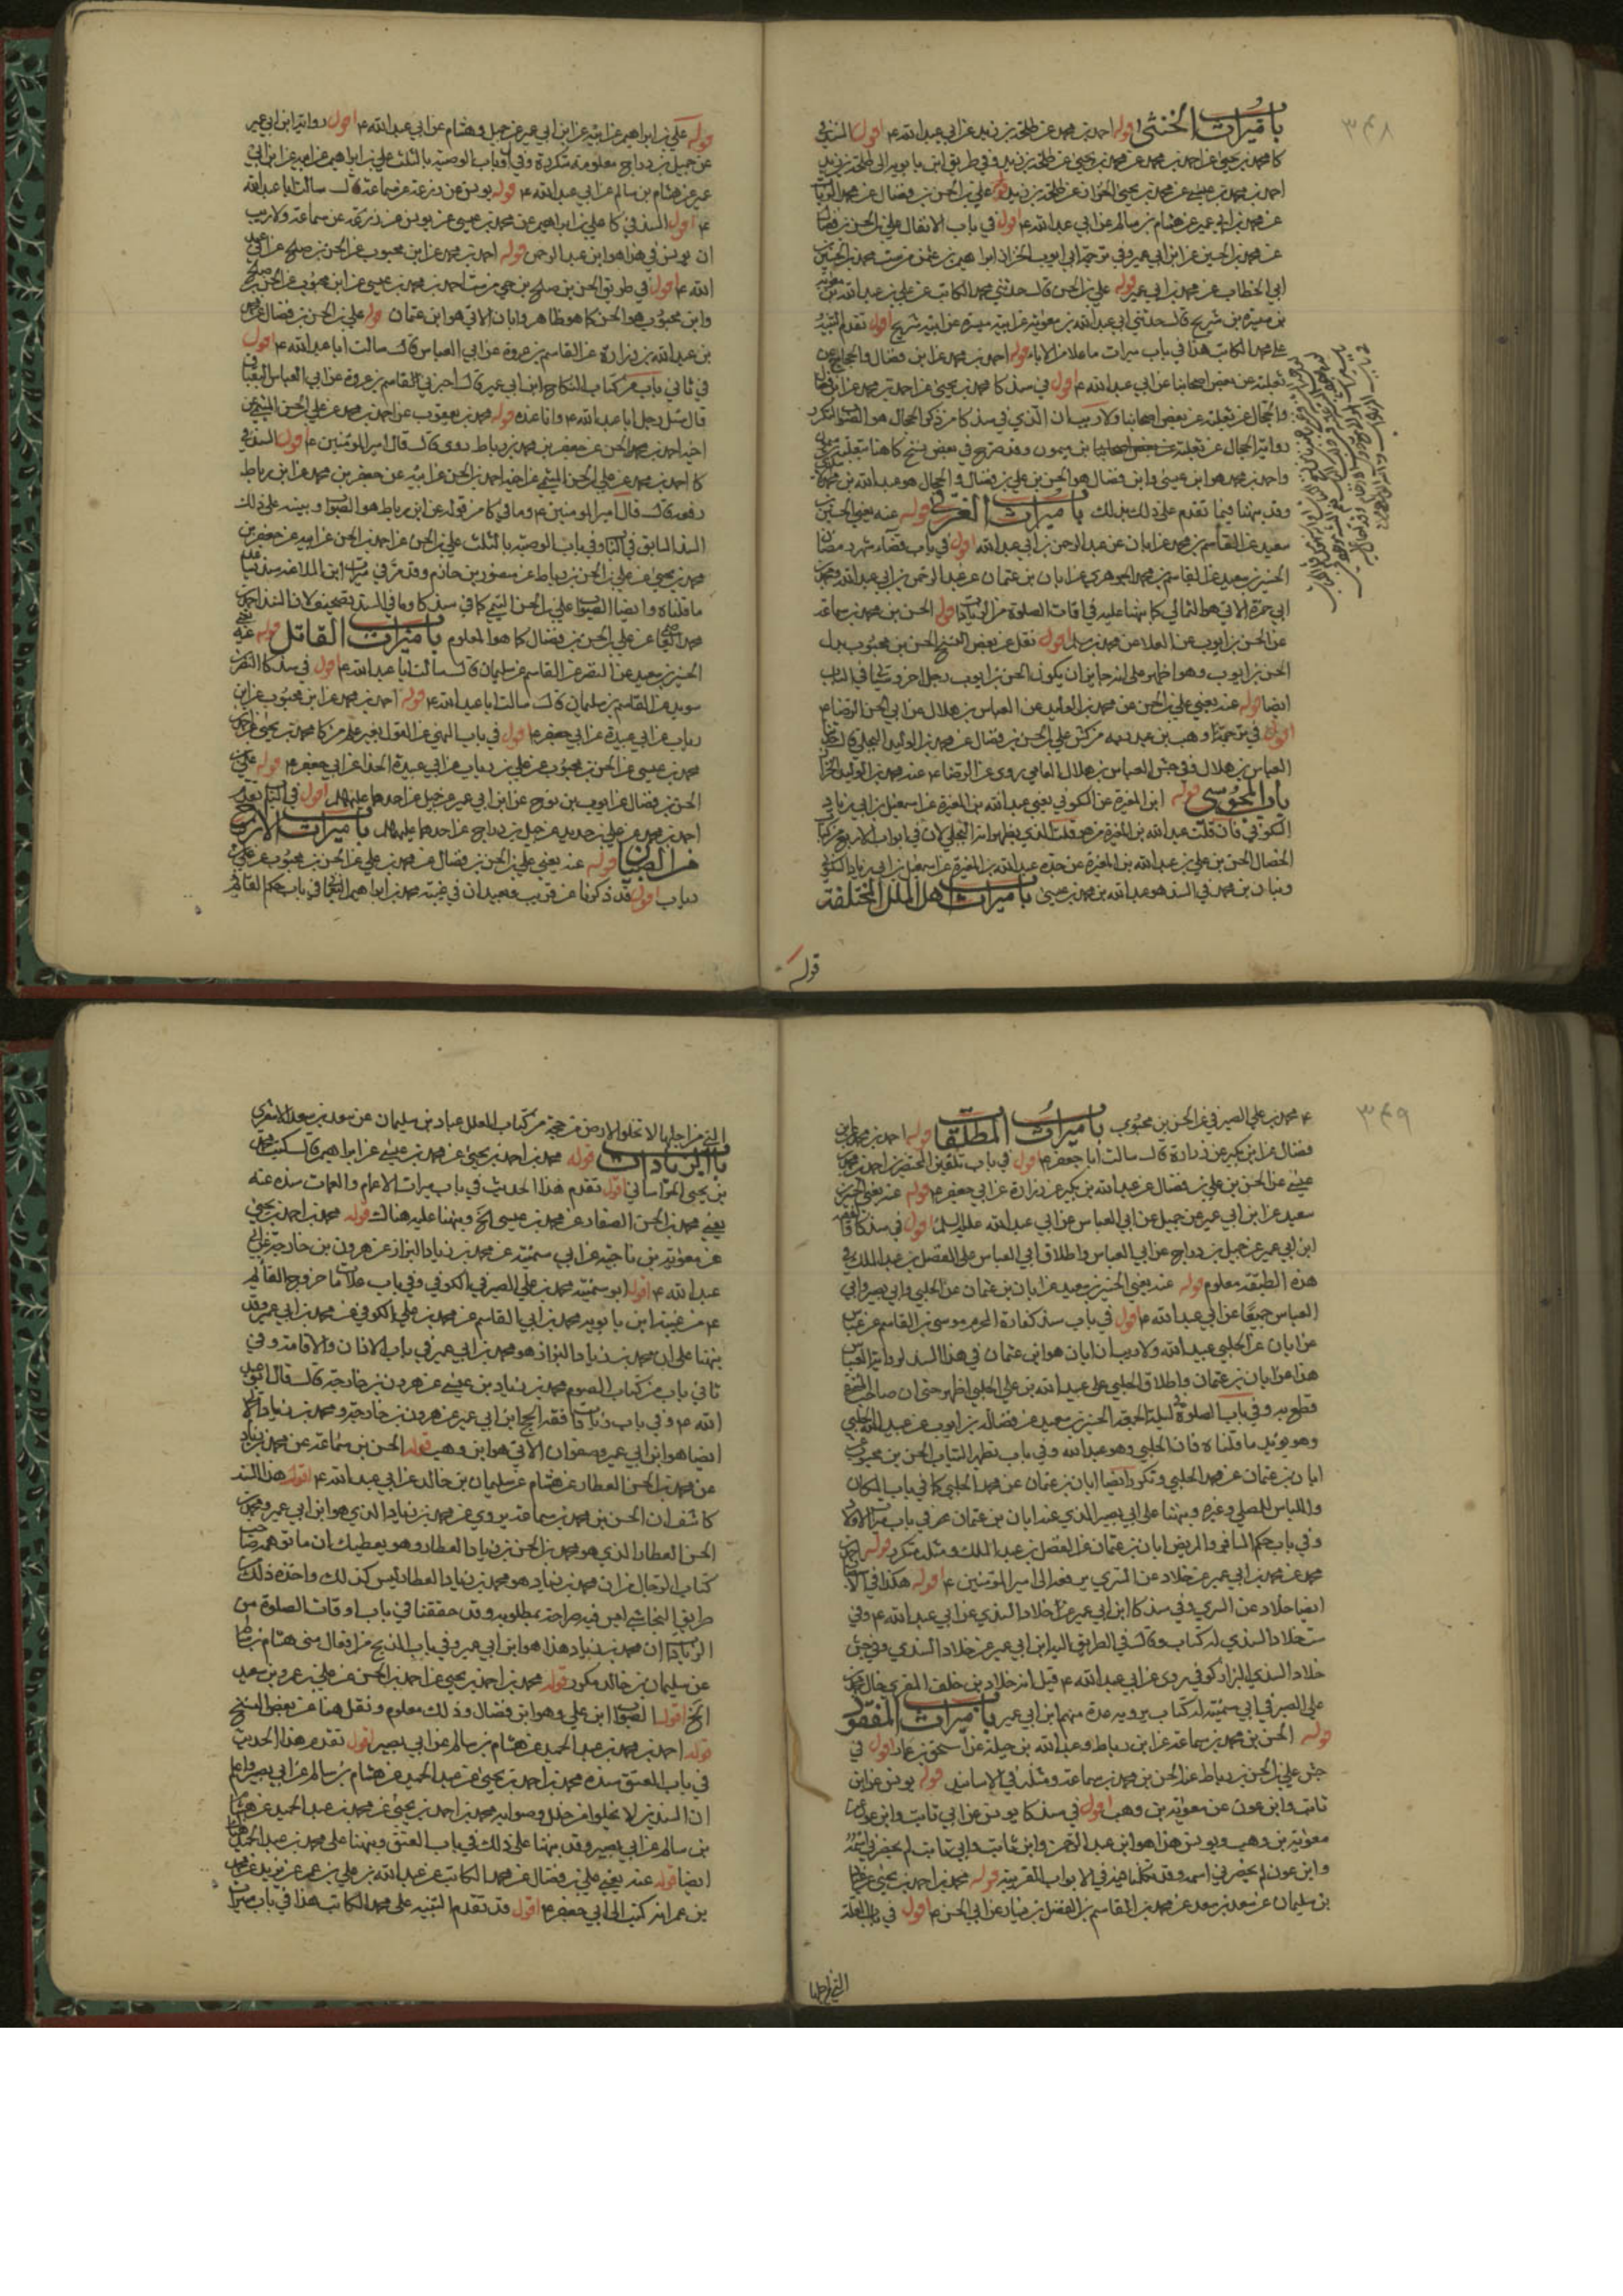 ٣٤٨
باب ميراث الخنثى قوله احمد بن محمد عن طلحة بن زيد عن ابي عبدالله ع اقول السند في
كا محمد بن يحيى عن احمد بن محمد عن محمد بن يحيى عن طلحة بن زيد وفي طريق ابن بابويه الى طلحة بن زيد
احمد بن محمد بن عيسى عن محمد بن يحيى الخزاز عن طلحة بن زيد قوله علي بن الحسن بن فضال عن محمد
عن محمد بن ابي عمير عن هشام بن سالم عن ابي عبدالله ع اقول في باب الانفال علي بن الحسن بن فضال
عن محمد بن الحسين عن ابن ابي عمير وفي ترجمة ابي ايوب الخزاز ابراهيم بن عثمن من ست محمد بن الحسين
ابي الخطاب عن محمد بن ابي عمير قوله علي بن الحسن قال حدثني محمد الكاتب عن علي بن عبدالله بن معوية
بن ميسرة بن شريح قال حدثني ابي عبدالله بن معوية عن ابيه ميسرة عن ابيه شريح اقول تقدم التنبيه
على محمد الكاتب هذا في باب ميراث ما علا من الاباء قوله احمد بن محمد عن ابن فضال والحجال عن
ثعلبة عن بعض اصحابنا عن ابي عبدالله ع اقول في سند كا محمد بن يحيى عن احمد بن محمد عن ابن فضال
والحجال عن ثعلبة عن بعض اصحابنا ولا ريب ان الذي في سند كا من ذكر الحجال هو الصواب لتكرر
رواية الحجال عن ثعلبة بن ميمون وقد صرح في بعض نسخ كا هنا بثعلبة
واحمد بن محمد هو ابن عيسى وابن فضال هو الحسن بن علي بن فضال والحجال هو عبدالله بن محمد
وقد نبهنا فيما تقدم على ذلك بذلك باب ميراث الغرقى قوله عنه يعني الحسين بن
سعيد عن القاسم بن محمد عن ابان عن عبدالرحمن بن ابي عبدالله اقول في باب قضاء شهر رمضان
الحسين بن سعيد عن القاسم بن محمد الجوهري عن ابان بن عثمان عن عبد الرحمن بن ابي عبدالله ومحمد بن
ابي حمزة الاتي هو الثمالي كما نبهنا عليه في اوقات الصلوة من الزيادات قوله الحسن بن محمد بن سماعة
عن الحسن بن ايوب عن العلا عن محمد بن مسلم اقول نقل عن بعض النسخ الحسن بن محبوب بدل
الحسن بن ايوب وهو اظهر على انه جايز ان يكون الحسن بن ايوب رجل اخر وسياتي في الباب
ايضا قوله عنه يعني علي بن الحسن عن محمد بن الوليد عن العباس بن هلال عن ابي الحسن الرضا ع
اقول في ترجمة وهب بن عبد ربه من كش علي بن الحسن بن فضال عن محمد بن الوليد البجلي قال
العباس بن هلال وفي جش العباس بن هلال الشامي روى عن الرضا ع عنه محمد بن الوليد الخزاز
باب المجوسي قوله ابن المغيرة عن السكوني يعني عبدالله بن المغيرة عن اسمعيل بن ابي زياد
السكوني فان قلت عبدالله بن المغيرة من هو قلت الذي يظهر انه البجلي لان في ابواب الاربع من كتاب
الخصال الحسن بن علي بن عبدالله بن المغيرة عن جده عبدالله بن المغيرة عن اسمعيل بن ابي زياد السكوني
وبنان بن محمد في السند هو عبدالله بن محمد بن عيسى باب ميراث اهل الملل المختلفة
قوله
قوله علي بن ابراهيم عن ابيه عن ابن ابي عمير عن جميل وهشام عن ابي عبدالله ع اقول رواية ابن ابي عمير
عن جميل بن دراج معلومة متكررة وفي باب الوصية بالثلث علي بن ابراهيم عن ابيه عن ابن ابي
عمير عن هشام بن سالم عن ابي عبدالله ع قوله يونس عن زرعة عن سماعة قال سالت ابا عبدالله
ع اقول السند في كا علي بن ابراهيم عن محمد بن عيسى عن يونس عن زرعة عن سماعة ولا ريب
ان يونس في هذا هو ابن عبد الرحمن قوله احمد بن محمد عن ابن محبوب عن الحسن بن صالح عن ابي عبد
الله ع اقول في طريق الحسن بن صالح بن حي من ست احمد بن محمد بن عيسى عن ابن محبوب عن الحسن بن صالح
وابن محبوب هو الحسن كما هو ظاهر وابان الاتي هو ابن عثمان قوله علي بن الحسن بن فضال عن محمد
بن عبدالله بن زرارة عن القاسم بن عروة عن ابي العباس قال سالت ابا عبدالله ع اقول
في ثاني باب من كتاب النكاح ابن ابي عمير قال اخبرني القاسم بن عروة عن ابي العباس البقباق
قال سئل رجل ابا عبدالله ع وانا عنده قوله محمد بن يعقوب عن احمد بن محمد عن علي بن الحسن الميثمي عن
اخيه احمد بن الحسن عن جعفر بن محمد بن رباط روى قال قال امير المؤمنين ع اقول السند في
كا احمد بن محمد عن علي بن الحسن الميثمي عن اخيه احمد بن الحسن عن ابيه عن جعفر بن محمد عن ابن رباط
رفعه قال قال امير المومنين ع وما في كا من قوله عن ابن رباط هو الصواب وينبه على ذلك
السند السابق في الكتاب وفي باب الوصية بالثلث علي بن الحسن عن احمد بن الحسن عن ابيه عن جعفر بن
محمد بن يحيى عن علي بن الحسن بن رباط عن منصور بن حازم وقد مر في ميراث ابن الملاعنة سند
ما قلناه وايضا الصواب علي بن الحسن التيمي كما في سند كا وما في السند تصحيف لان السند احمد بن
محمد عن علي بن الحسن بن فضال كما هو المعلوم باب ميراث القاتل قوله عنه يعني
الحسين بن سعيد عن النضر عن القاسم بن سليمان قال سالت ابا عبدالله ع اقول في سند كا النضر بن
سويد عن القاسم بن سليمان قال سالت ابا عبدالله ع قوله احمد بن محمد عن ابن محبوب عن ابن
رياب عن ابي عبيدة عن ابي جعفر ع اقول في باب النهي عن القول بغير علم من كا محمد بن يحيى عن احمد بن
محمد بن عيسى عن الحسن بن محبوب عن علي بن رياب عن ابي عبيدة الحذا عن ابي جعفر ع قوله علي بن
الحسن بن فضال عن ايوب بن نوح عن ابن ابي عمير وجميل عن احدهما عليهما السلام اقول في
احمد بن محمد عن علي بن حديد عن جميل بن دراج عن احدهما عليهما السلام باب ميراث الازواج
من الصبيان قوله عنه يعني علي بن الحسن بن فضال عن محمد بن علي عن الحسن بن محبوب عن علي بن
رياب اقول قد ذكرنا عن قريب وبعيد ان في غيبة محمد بن ابراهيم النعماني في باب حكم القائم
٣٤٩
ع محمد بن علي الصيرفي عن الحسن بن محبوب باب ميراث المطلقات قوله احمد بن محمد عن ابن
فضال عن ابن بكير عن زرارة قال سالت ابا جعفر ع اقول في باب تلقين المحتضر احمد بن محمد بن
عيسى عن الحسن بن علي بن فضال عن عبدالله بن بكير عن زرارة عن ابي جعفر ع قوله عنه يعني الحسين بن
سعيد عن ابن ابي عمير عن جميل عن ابي العباس عن ابي عبدالله عليه السلم اقول في سند كا
ابن ابي عمير عن جميل بن دراج عن ابي العباس واطلاق ابي العباس على الفضل بن عبدالملك في
هذه الطبقة معلوم قوله عنه يعني الحسين بن سعيد عن ابان بن عثمان عن الحلبي وابي بصير وابي
العباس جميعا عن ابي عبدالله ع اقول في باب سند كفارة المحرم موسى بن القاسم عن عباس
عن ابان عن الحلبي عبيدالله ولا ريب ان ابان هو ابن عثمان في هذا السند لرواية العباس
هذا عن ابان بن عثمان واطلاق الحلبي على عبيدالله بن علي الحلبي اظهر حتى ان صاحب المنتهى
قطع به وفي باب الصلوة ليلة الجمعة الحسين بن سعيد عن فضالة بن ايوب عن عبيدالله الحلبي
وهو يؤيد ما قلناه فان الحلبي وهو عبدالله وفي باب تطهير الثياب الحسن بن محبوب عن
ابان بن عثمان عن محمد الحلبي وتكرر ايضا ابان بن عثمان عن محمد الحلبي كما في باب المكان
واللباس للمصلي وغيره ونبهنا على ابي بصير الذي عنه ابان بن عثمان في باب ميراث الاولاد
وفي باب حكم المسافر والمريض ابان بن عثمان عن الفضل بن عبد الملك ومثله متكرر قوله احمد بن
محمد عن محمد بن ابي عمير عن خلاد عن السري يرفعه الى امير المؤمنين ع اقول هكذا في
ايضا خلاد عن السري وفي سند كا ابن ابي عمير عن خلاد السندي عن ابي عبدالله ع وفي
ست خلاد السندي له كتاب وقال في الطريق اليه ابن ابي عمير عن خلاد السندي وفي جش
خلاد السندي البزاز كوفي روى عن ابي عبدالله ع قيل انه خلاد بن خلف المقري خال محمد بن
علي الصيرفي ابي سمينة له كتاب يرويه عدة منهم ابن ابي عمير باب ميراث المفقود
قوله الحسن بن محمد بن سماعة عن ابن رباط وعبدالله بن جبلة عن اسحق بن عمار اقول في
جش علي بن الحسن بن رباط عنه الحسن بن محمد بن سماعة ومثله في الاسانيد قوله يونس عن ابن
ثابت وابن عون عن معوية بن وهب اقول في سند كا يونس عن ابي ثابت وابن عون عن
معوية بن وهب ويونس هذا هو ابن عبد الرحمن وابن ثابت وابي ثابت لم يحضرني اسمه
وابن عون لم يحضرني اسمه وقد تكلمنا فيه في الابواب القريبة قوله محمد بن احمد بن يحيى عن عباد
بن سليمان عن سعد بن سعد عن محمد بن القاسم بن الفضيل بن يسار عن ابي الحسن ع اقول في باب العلة
التي من اجلها
التي من اجلها لا تخلو الارض من حجة من كتاب العلل عباد بن سليمان عن سعد بن سعد الاشعري
باب الزيادات قوله محمد بن احمد بن يحيى عن محمد بن عيسى عن ابراهيم قال كتب محمد
بن يحيى الخراساني اقول تقدم هذا الحديث في باب ميراث الاعمام والعمات سنده عنه
يعني محمد بن الحسن الصفار عن محمد بن عيسى الخ ونبهنا عليه هناك قوله محمد بن احمد بن يحيى
عن معوية بن ناجية عن ابي سمينة عن محمد بن زياد البزاز عن هرون بن خارجة عن ابي
عبدالله ع اقول ابو سمينة محمد بن علي الصيرفي الكوفي وفي باب علامات خروج القائم
ع من غيبة ابن بابويه محمد بن ابي القاسم عن محمد بن علي الكوفي عن محمد بن ابي عمير وقد
نبهنا على ان محمد بن زياد البزاز هو محمد بن ابي عمير في باب الاذان والاقامة وفي
ثاني باب من كتاب الصوم محمد بن زياد بن عيسى عن هرون بن خارجة قال قال ابو عبد
الله ع وفي باب زيادات فقه الحج ابن ابي عمير عن هرون بن خارجة ومحمد بن زياد الاتي
ايضا هو ابن ابي عمير وصفوان الاتي هو ابن وهب قوله الحسن بن سماعة عن محمد بن زياد
عن محمد بن الحسن العطار عن هشام عن سليمان بن خالد عن ابي عبدالله ع اقول هذا السند
كاشف ان الحسن بن محمد بن سماعة يروي عن محمد بن زياد الذي هو ابن ابي عمير ومحمد بن
الحسن العطار الذي هو محمد بن الحسن بن زياد العطار وهو يعطيك ان ما توهمه صاحب
كتاب الرجال من ان محمد بن زياد هو محمد بن زياد العطار ليس كذلك واخذه ذلك
طريق النجاشي ليس فيه صراحة بمطلوبه وقد حققنا في باب اوقات الصلوة من
الزيادات ان محمد بن زياد هذا هو ابن ابي عمير وفي باب الذبح من افعال منى هشام بن سالم
عن سليمان بن خالد مكرر قوله محمد بن احمد بن يحيى عن احمد بن الحسن عن علي عن عمرو بن سعيد
الخ اقول الصواب ابن علي وهو ابن فضال وذلك معلوم ونقل هنا عن بعض النسخ
قوله احمد بن محمد بن عبد الحميد عن هشام بن سالم عن ابي بصير اقول تقدم هذا الحديث
في باب العتق سنده محمد بن احمد بن يحيى عن عبد الحميد عن هشام بن سالم عن ابي بصير واعلم
ان السندين لا يخلوا من خلل وصوابه محمد بن احمد بن يحيى عن محمد بن عبد الحميد عن هشام
بن سالم عن ابي بصير وقد نبهنا على ذلك في باب العتق ونبهنا على محمد بن عبد الحميد هنا
ايضا قوله عنه يعني علي بن فضال عن محمد الكاتب عن عبدالله بن علي بن عمر بن يزيد عن عمه محمد
بن عمر انه كتب الى ابي جعفر ع اقول قد تقدم التنبيه على محمد الكاتب هذا في باب ميراث